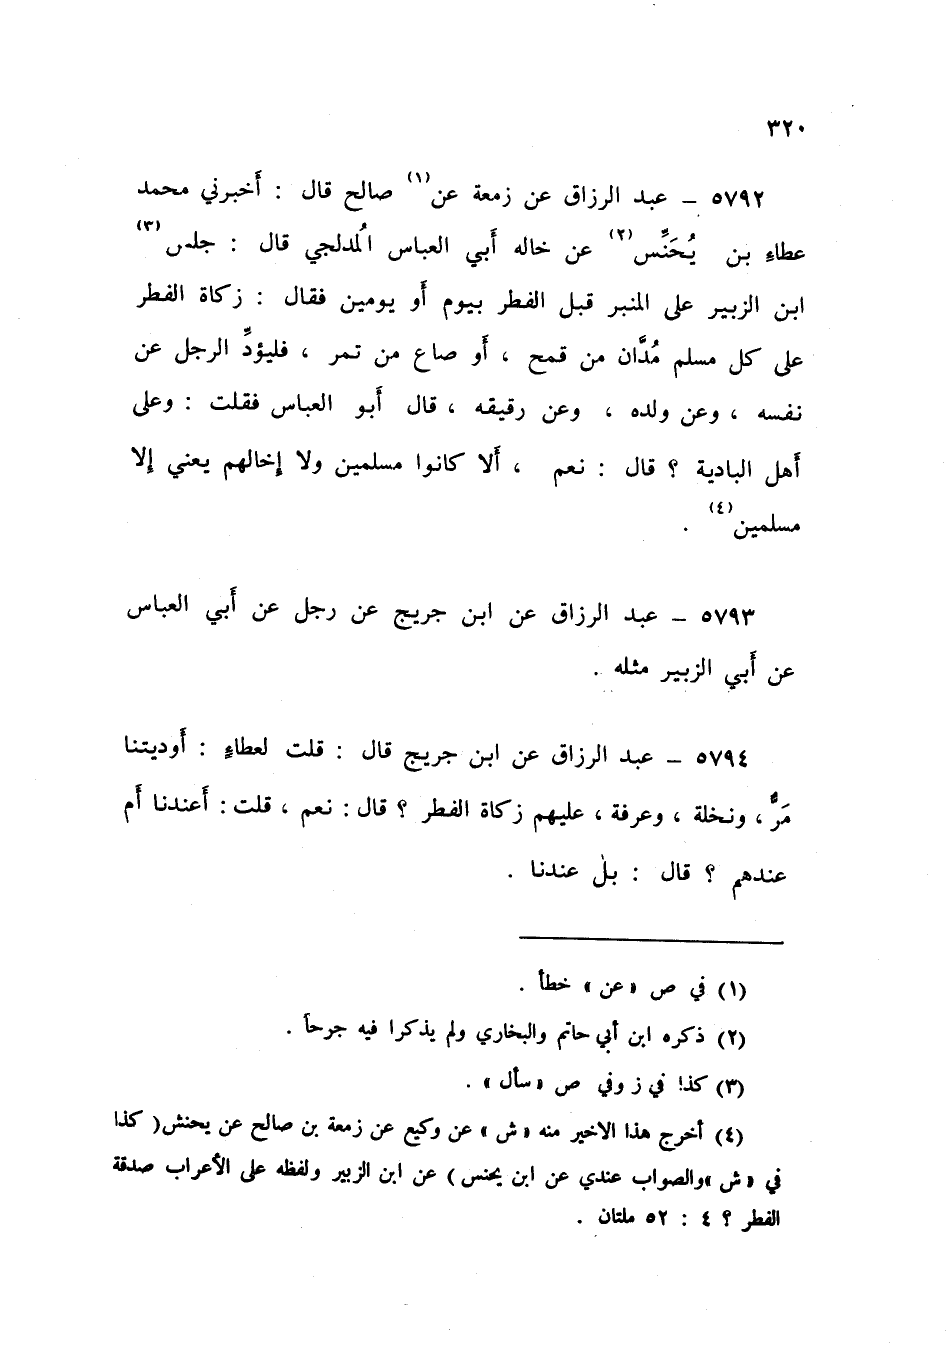 ٣٢٠
٥٧٩٢ - عبد الرزاق عن زمعة عن(١) صالح قال : أَخبرني محمد
عطاء بن يُحَنِّس(٢) عن خاله أَبي العباس المُدلجي قال : جلس(٣)
ابن الزبير على المنبر قبل الفطر بيوم أَو يومين فقال : زكاة الفطر
على كل مسلم مُدَّان من قمح ، أَو صاع من تمر ، فليؤدِّ الرجل عن
نفسه ، وعن ولده ، وعن رقيقه ، قال أَبو العباس فقلت : وعلى
أَهل البادية ؟ قال : نعم ، أَلا كانوا مسلمين ولا إخالهم يعني إلا
مسلمين(٤) .
٥٧٩٣ - عبد الرزاق عن ابن جريج عن رجل عن أَبي العباس
عن أَبي الزبير مثله .
٥٧٩٤ - عبد الرزاق عن ابن جريج قال : قلت لعطاءٍ : أَوديتنا
مَرٌّ ، ونخلة ، وعرفة ، عليهم زكاة الفطر ؟ قال : نعم ، قلت : أَعندنا أَم
عندهم ؟ قال : بل عندنا .
(١) في ص «عن» خطأ .
(٢) ذكره ابن أبي حاتم والبخاري ولم يذكرا فيه جرحاً .
(٣) كذا في ز وفي ص «سأل» .
(٤) أخرج هذا الاخير منه «ش» عن وكيع عن زمعة بن صالح عن يحنش( كذا
في «ش»والصواب عندي عن ابن يحنس ) عن ابن الزبير ولفظه على الأعراب صدقة
الفطر ؟ ٤ : ٥٢ ملتان .